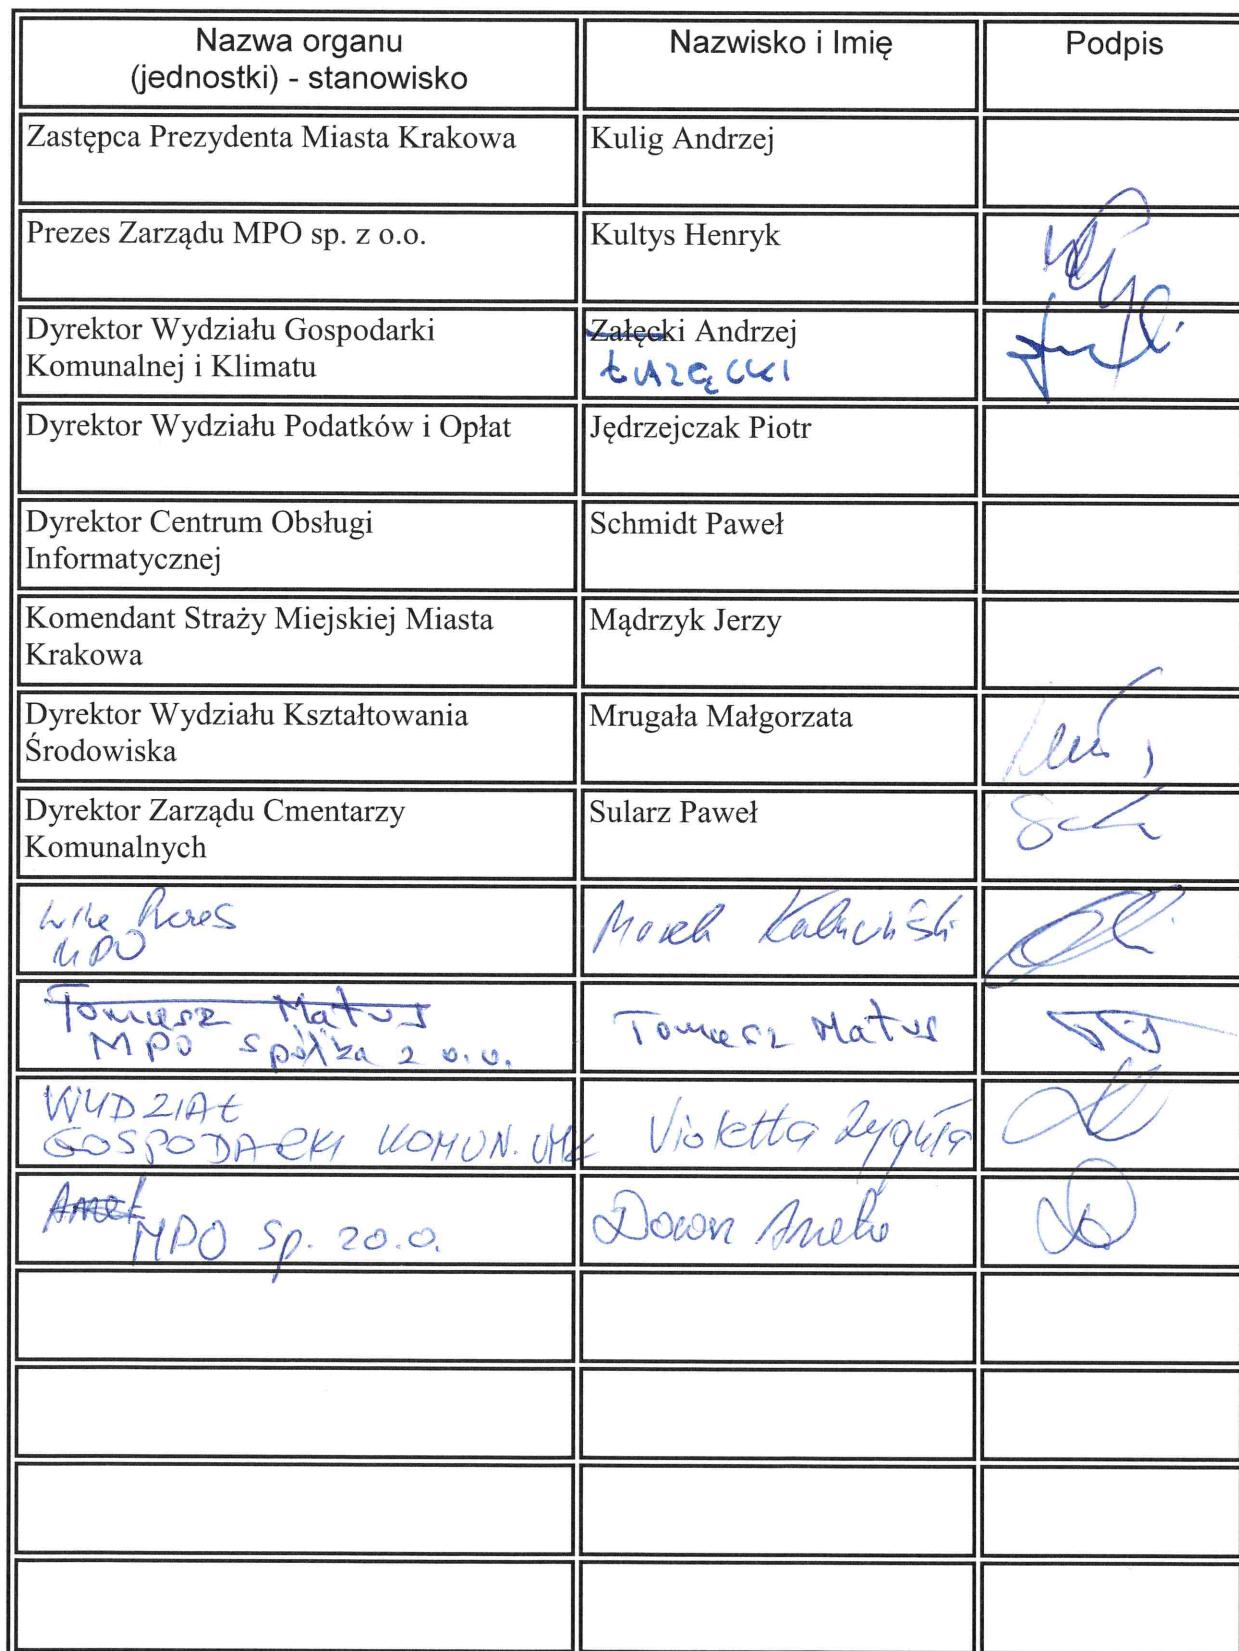 Nazwa organu
(jednostki) - stanowisko
Nazwisko i Imię
Podpis
Zastępca Prezydenta Miasta Krakowa
Kulig Andrzej
Prezes Zarządu MPO sp. z o.o.
Kultys Henryk
Dyrektor Wydziału Gospodarki
Komunalnej i Klimatu
Załęcki Andrzej
ŁAZĘCKI
Dyrektor Wydziału Podatków i Opłat
Jędrzejczak Piotr
Dyrektor Centrum Obsługi
Informatycznej
Schmidt Paweł
Komendant Straży Miejskiej Miasta
Krakowa
Mądrzyk Jerzy
Dyrektor Wydziału Kształtowania
Środowiska
Mrugała Małgorzata
Dyrektor Zarządu Cmentarzy
Komunalnych
Sularz Paweł
Prezes
MPO
Marek
Tomasz Matus
MPO Spółka z o.o.
Tomasz Matus
WYDZIAŁ
GOSPODARKI KOMUN. UMK
Violetta
MPO Sp. z o.o.
Aneta